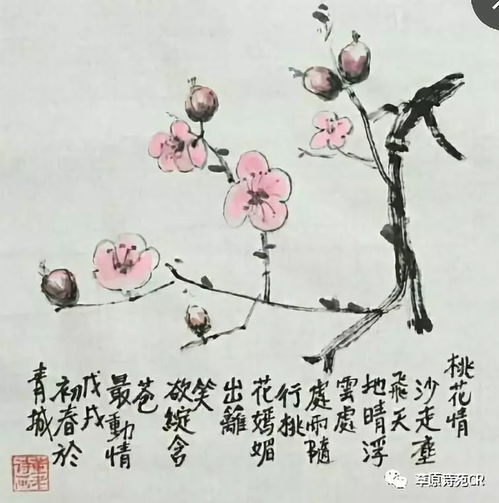 桃花情
沙走塵
飛天
地晴浮
雲處
處雨隨
行桃
花嫣媚
出離
笑
欲綻含
苞
最動情
戊戌
初春於
青城
草原诗苑CR